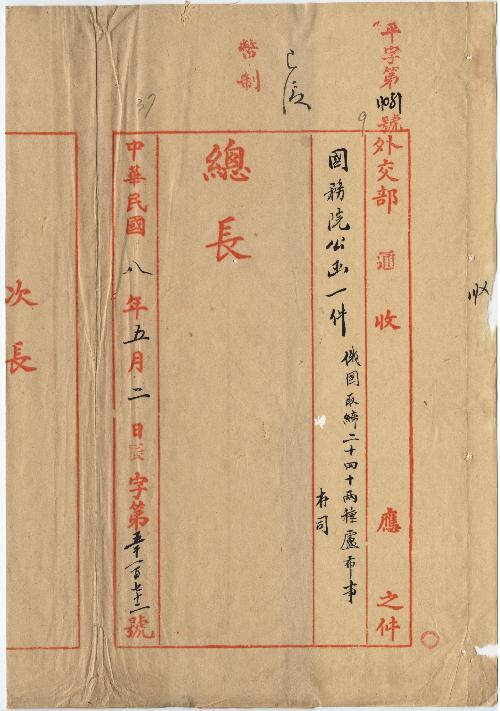 平字第11081號
外交部 通 收 應 之件
收
國務院公函一件
俄國取締二十四十兩種盧布事
存司
幣制
總長
中華民國八年五月二日長字第五千一百七十一號
37
9
次長